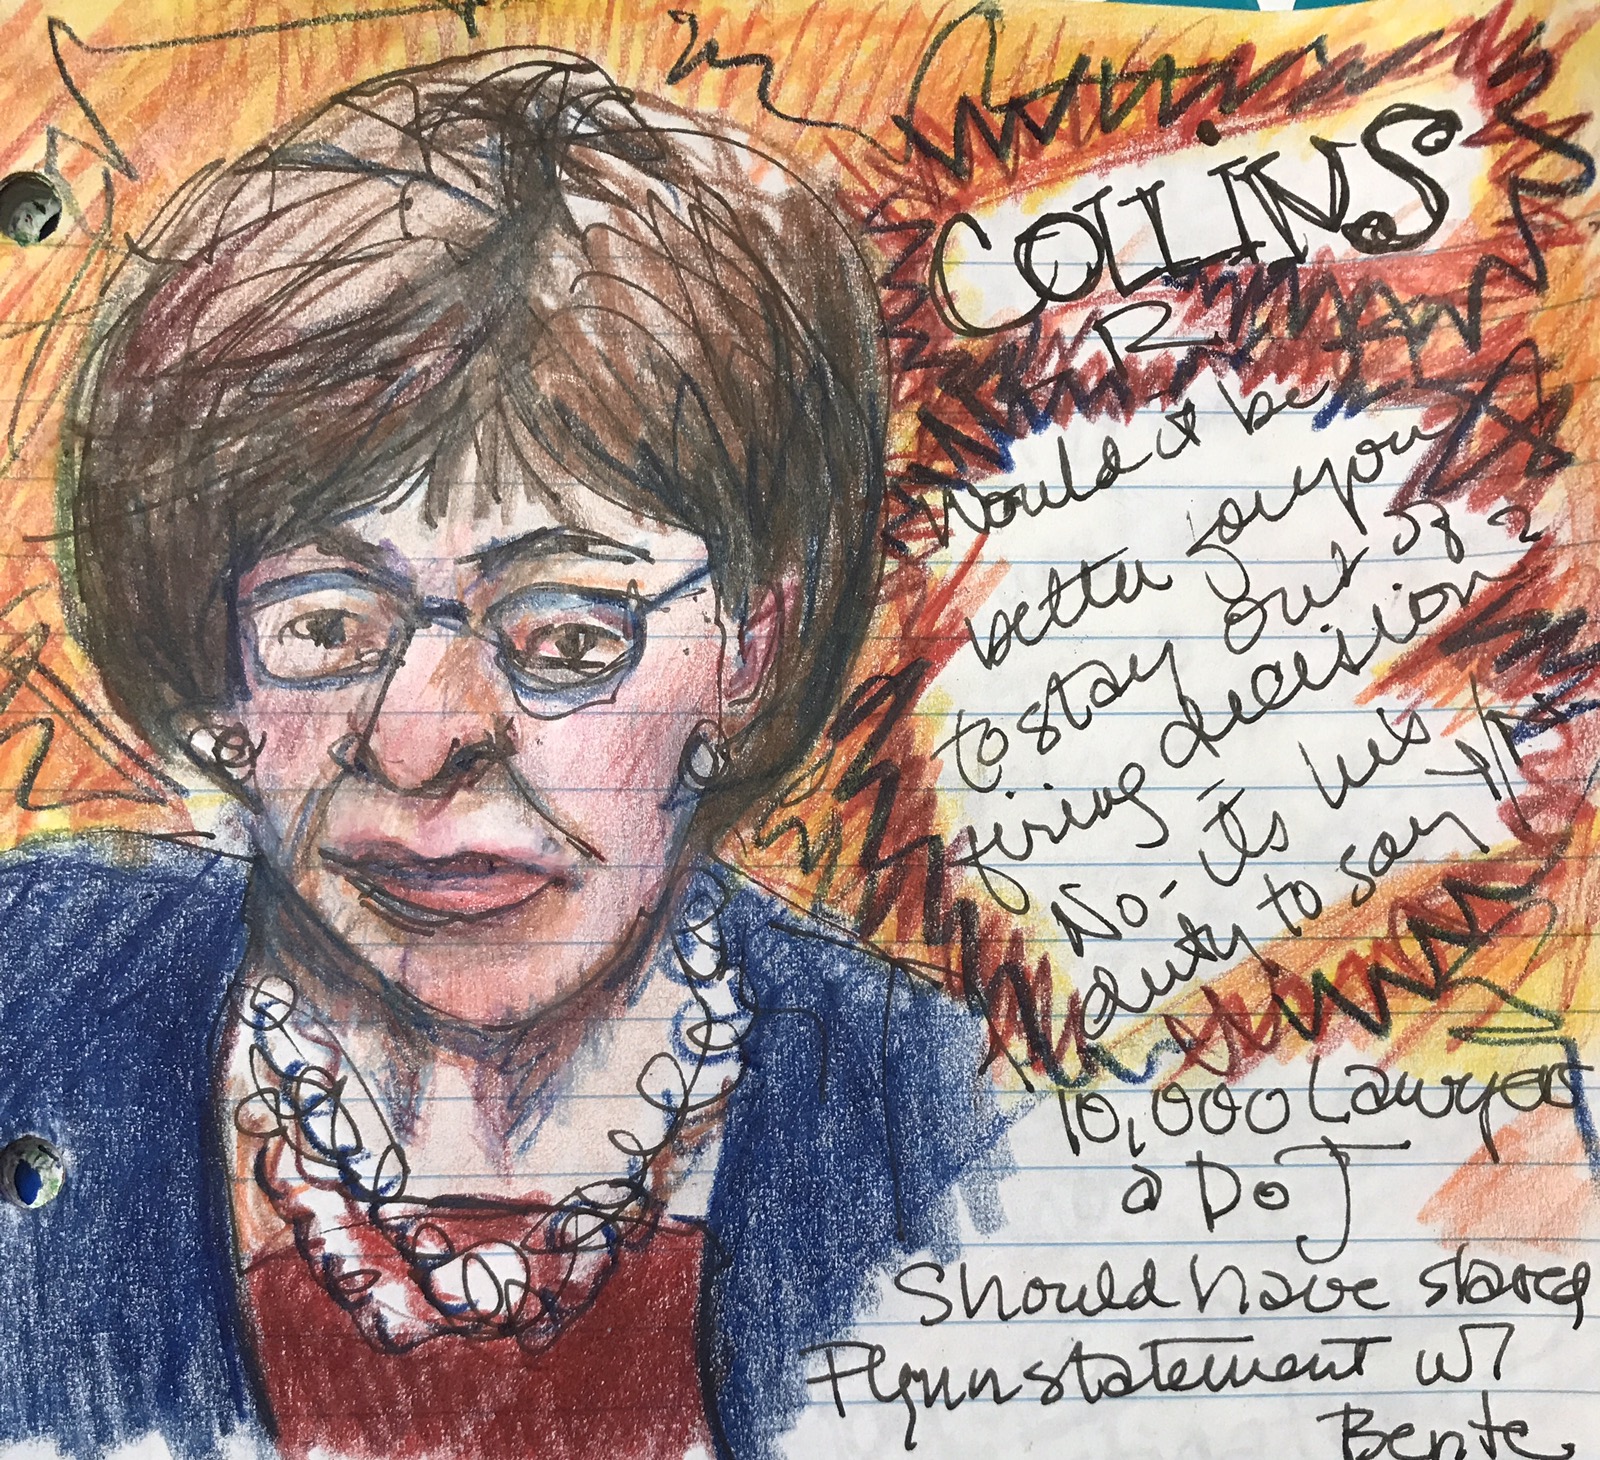 COLLINS
R
Would it be
better for you
to stay out of
firing decision?
No- its his
duty to say Y/N
10,000 Lawyers
@ DoJ
Should have shared
Flynn statement w/
Bente